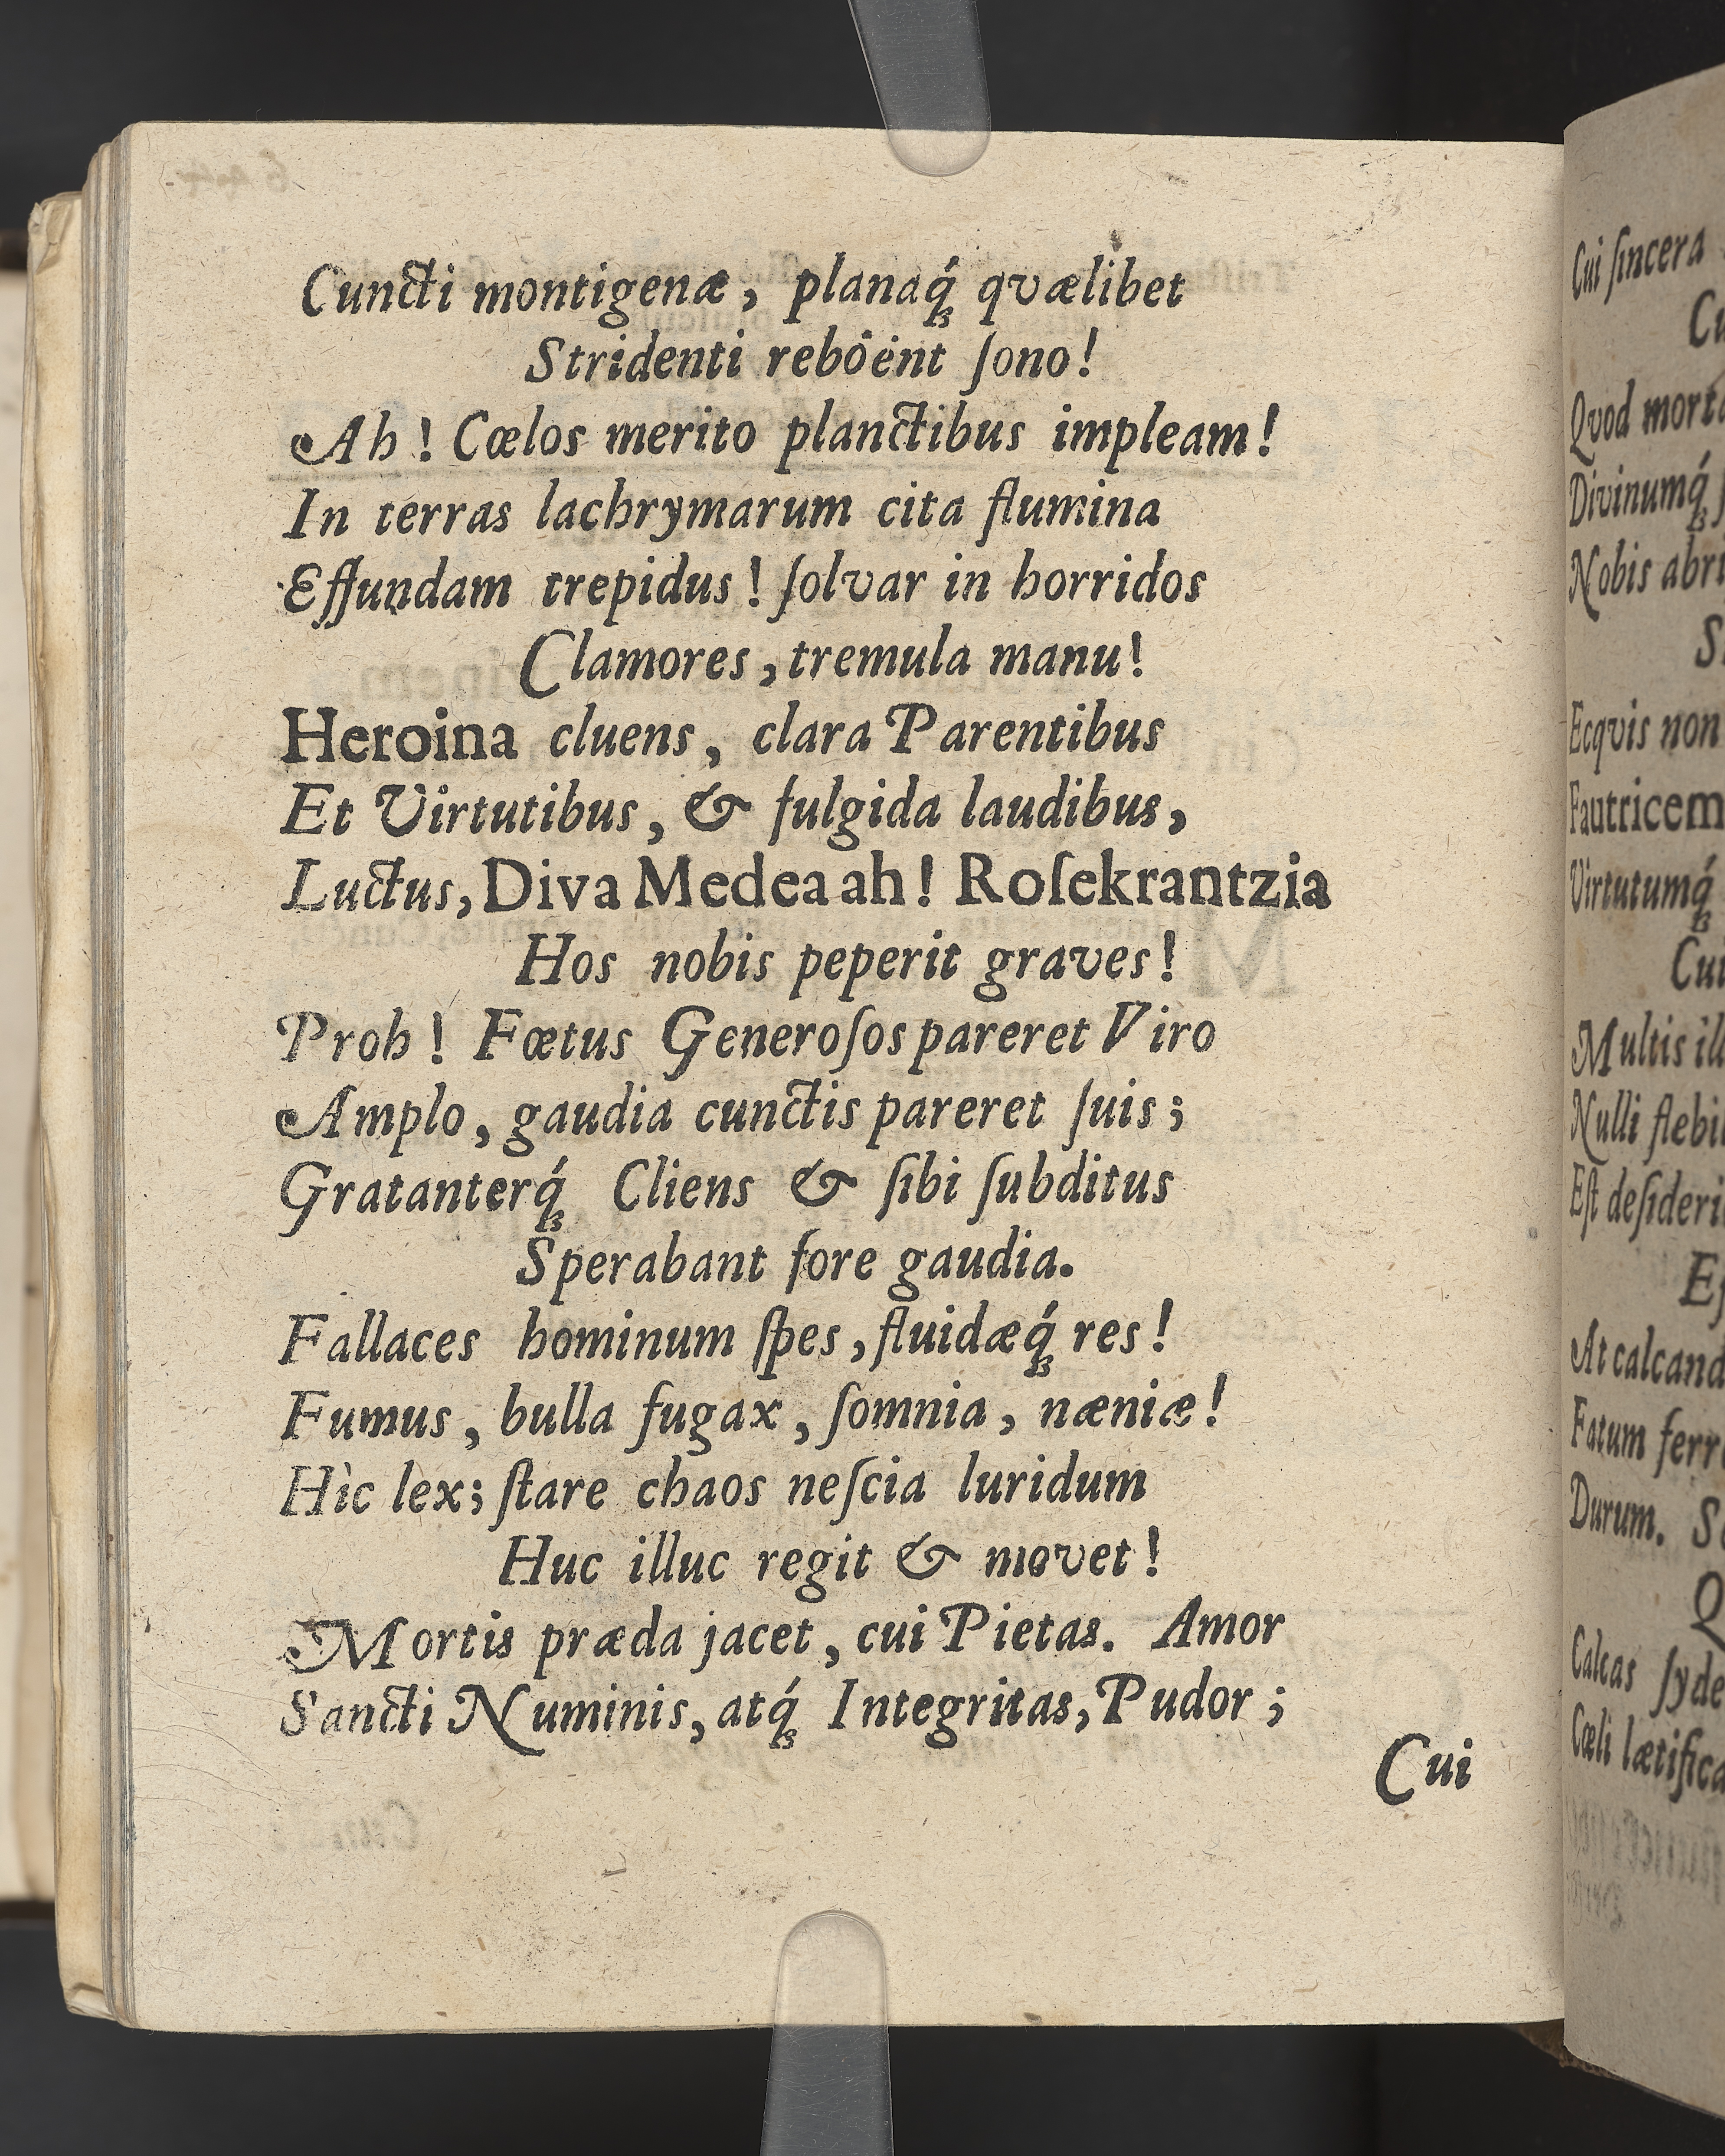 Cuncti montigenæ, planaq́ꝫ qvælibet
Stridenti reböent ſono!
Ah! Cœlos merito planctibus impleam!
In terras lachrymarum cita flumina
Effundam trepidus! ſolvar in horridos
Clamores, tremula manu!
Heroina cluens, clara Parentibus
Et Virtutibus, & fulgida laudibus,
Luctus, Diva Medea ah! Roſekrantzia
Hos nobis peperit graves!
Proh! Fœtus Generoſos pareret Viro
Amplo, gaudia cunctis pareret ſuis;
Gratanterq́ꝫ Cliens & ſibi ſubditus
Sperabant fore gaudia.
Fallaces hominum ſpes, fluidæq́ꝫ res!
Fumus, bulla fugax, ſomnia, næniæ!
Hìc lex; ſtare chaos neſcia luridum
Huc illuc regit & movet!
Mortis præda jacet, cui Pietas. Amor
Sancti Numinis, atq́ꝫ Integritas, Pudor;
Cui
Cui ſincera
Qvod
Divinumq́ꝫ
Nobis
Ecqvis non
Fautricem
Virtutumq́ꝫ
Multis
Nulli
Eſt
At
Fatum
Durum.
Calcas
Cœli